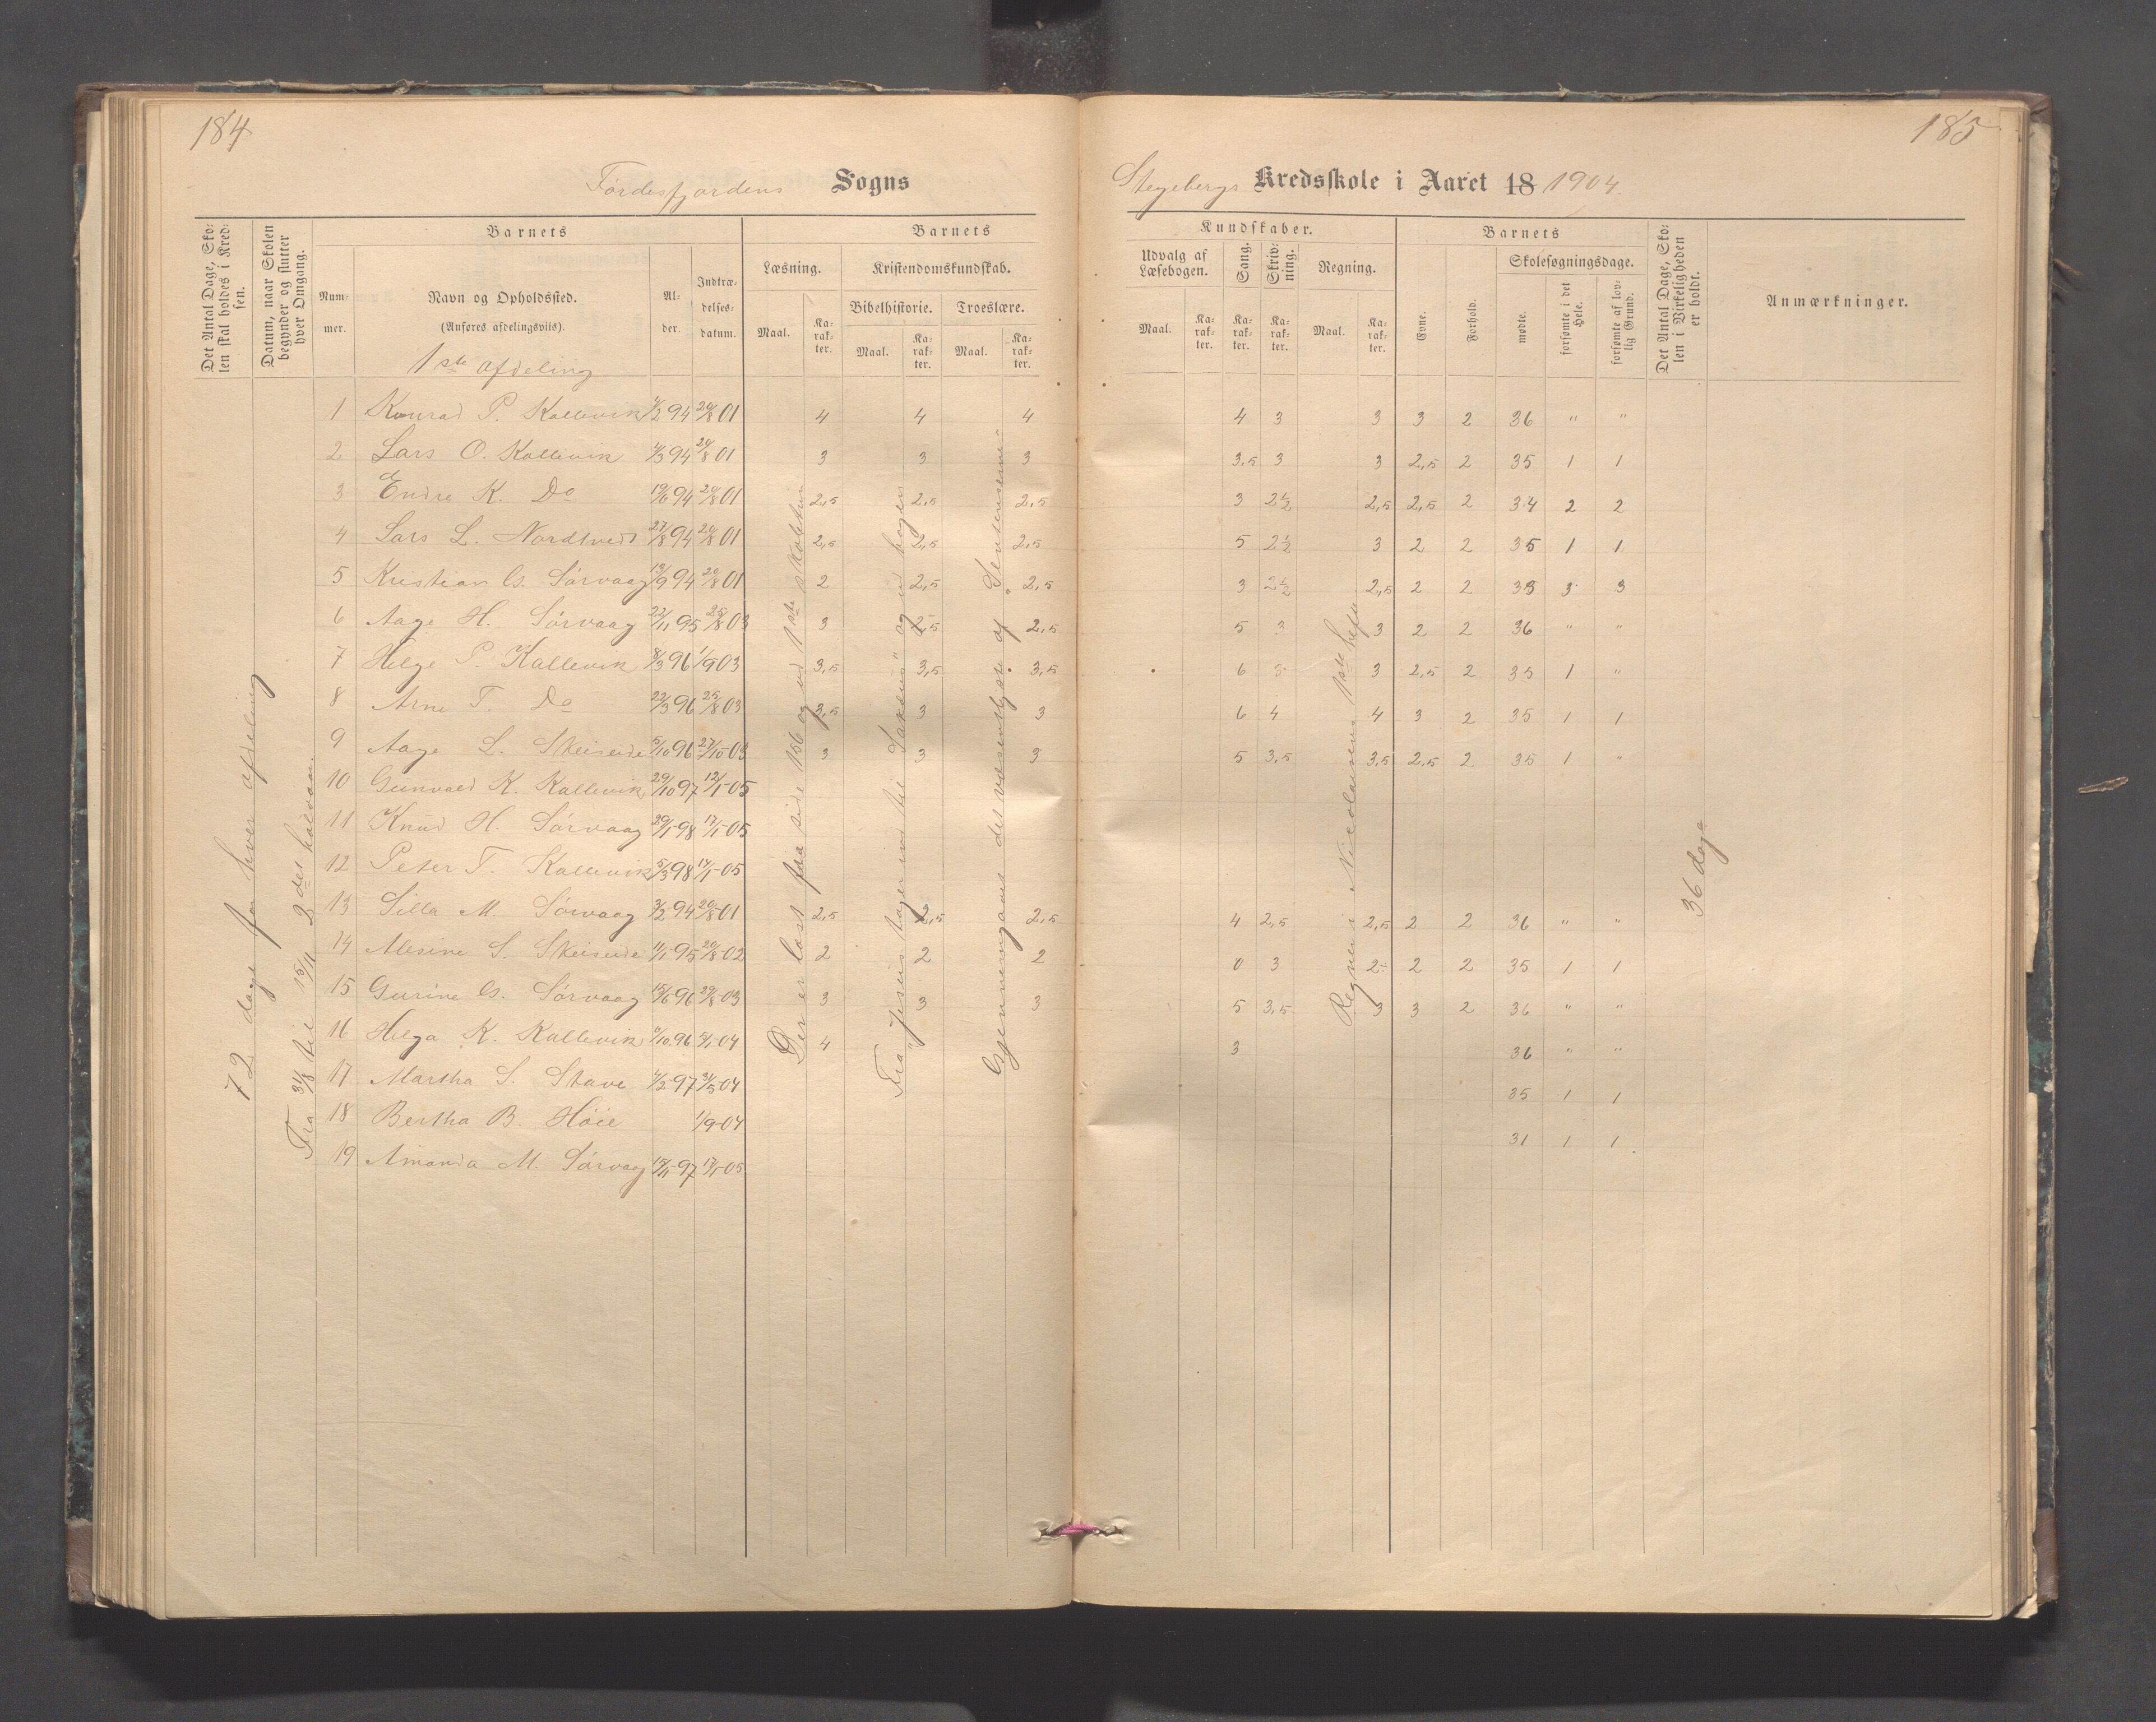 184
Førdesfjordens Sogns
Det Antal Dage, Sko-
len skal holdes i Kred-
sen.
Datum, naar Skolen
begynder og slutter
hver Omgang.
Barnets
Num-
mer.
Navn og Opholdssted.
(Anføres afdelingsviis).
1ste afdeling
Al-
der.
Indtræ-
delses-
datum.
Barnets
Læsning.
Maal.
Ka-
rak-
ter.
Kristendomskundskab.
Bibelhistorie.
Maal.
Ka-
rak-
ter.
Troeslære.
Maal.
Ka-
rak-
ter.
1 Konrad P. Kallevik 4/2 94 20/8 01 4 4 4
2 Lars O. Kallevik 4/3 94 20/8 01 3 3 3
3 Endre K. Do 19/6 94 20/8 01 2,5 2,5 2,5
4 Lars L. Nordtvedt 27/8 94 20/8 01 2,5 2,5 2,5
5 Kristian G. Sørvaag 13/9 94 20/8 01 2 2,5 2,5
6 Aage H. Sørvaag 22/11 95 25/8 03 3 2,5 2,5
7 Helge P. Kallevik 8/3 96 1/9 03 3,5 3,5 3,5
8 Arne T. Do 22/3 96 25/8 03 3,5 3 3
9 Aage L. Skeiseide 5/10 96 27/10-03 3 3 3
10 Gunvald K. Kallevik 29/10 97 12/1-05
11 Knud H. Sørvaag 29/1-98 17/1-05
12 Peter T. Kallevik 5/3 98 17/1-05
13 Silla M. Sørvaag 3/2 94 20/8-01 2,5 2,5 2,5
14 Alesine S. Skeiseide 11/1 95 20/8-02 2 2 2
15 Gurine G. Sørvaag 15/6 96 29/8-03 3 3 3
16 Helga K. Kallevik 9/10 96 5/1-04 4
17 Martha S. Stave 4/2-97 31/5-04
18 Bertha B. Høie 1/9-04
19 Amanda M. Sørvaag 15/11-97 17/1-05
72 dage for hver afdeling
Fra 31/8 til 15/11 2det halvaar.
Der er læst fra side 156 og ud 1ste skolebn
Fra "Jesus tager ind til Sakæus" og ud bogen
Gjennemgaaet det væsentligste af "Sentenserne"
185
Stegebergs Kredsskole i Aaret 18 1904.
Kundskaber.
Udvalg af
Læsebogen.
Maal.
Ka-
rak-
ter.
Sang.
Ka-
rak-
ter.
Skriv-
ning.
Ka-
rak-
ter.
Regning.
Maal.
Ka-
rak-
ter.
Barnets
Evne.
Forhold.
Skolesøgningsdage.
mødte.
forsømte i det
Hele.
forsømte af lov-
lig Grund.
Det Antal Dage, Sko-
len i Virkeligheden
er holdt.
Anmærkninger.
4 3 3 3 2 36 " "
3,5 3 3 2,5 2 35 1 1
3 2½ 2,5 2,5 2 34 2 2
5 2½ 3 2 2 35 1 1
3 2½ 2,5 2 2 33 3 3
5 3 3 2 2 36 " "
6 3 3 2,5 2 35 1 "
6 4 4 3 2 35 1 1
5 3,5 3,5 2,5 2 35 1 "
4 2,5 2,5 2 2 36 " "
0 3 2- 2 2 35 1 1
5 3,5 3 3 2 36 " "
3 36 " "
35 1 1
31 1 1
Regnet i Nicolaisens 1ste hefte
36 dage